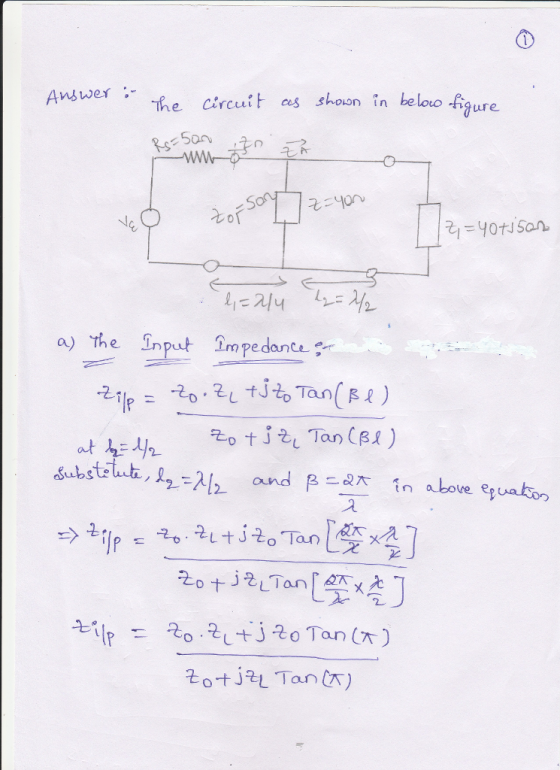 1
Answer :- The circuit as shown in below figure
Rs=50Ω
Z0=50Ω
Z=40Ω
Z1=40+j50Ω
l1=λ/4
l2=λ/2
a) The Input Impedance :-
Zi/p = Z0.ZL+jZ0 Tan(βl)
Z0+jZL Tan(βl)
at l2=λ/2
Substitute, l2=λ/2 and β=2π/λ in above equation
⇒ Zi/p = Z0.ZL+jZ0 Tan[2π/λ×λ/2]
Z0+jZL Tan[2π/λ×λ/2]
Zi/p = Z0.ZL+jZ0 Tan(π)
Z0+jZL Tan(π)